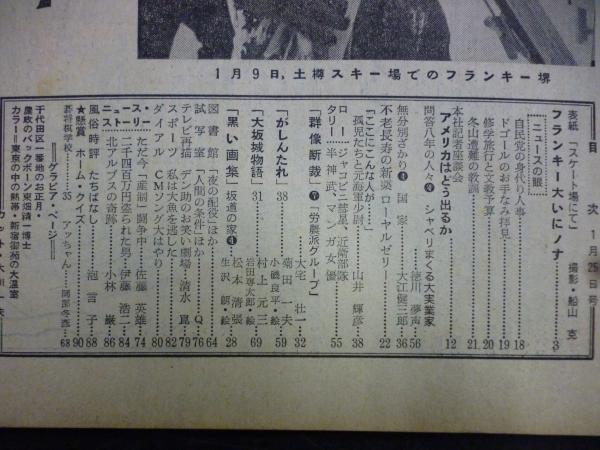 1月9日,土樽スキー場でのフランキー堺
目次 1月25日号
表紙「スケート場にて」 撮影・船山克
フランキー大いにノナ 3
ニュースの眼
自民党の身代り人事 18
ドゴールのお手なみ拝見 19
修学旅行と文教予算 20
冬山遭難の教訓 21
本社記者座談会
アメリカはどう出るか 12
問答八年の人々 シャベリまくる大実業家 徳川夢声 56
無分別ざかり 国家 大江健三郎 36
不老長寿の新薬 ローヤルゼリー 22
「ここにこんな人が……」
孤児たちと元海軍少尉 山井輝彦 38
ロータリー ジャコビニ彗星、近衛部隊
半神武、マンガ女優 55
「群像断裁」「労農派グループ」 大宅壮一 32
「がしんたれ」 38 菊田一夫 59
小磯良平・絵
「大坂城物語」 31 村上元三 69
岩田専太郎・絵
「黒い画集」坂道の家 松本清張 28
生沢朗・絵
図書館 「夜の配役」ほか 64
試写室 「人間の条件」ほか Q 76
テレビ再描 デン助のお笑い劇場 清水崑 79
スポーツ 私は大魚を逃した 82
ダイアル CMソング大はやり 80
ニュース・ストーリー
ただ今「産制」闘争中 佐藤英雄 74
二千四百万円盗られた男 伊藤浩二 84
北アルプスの奇跡 小林巌 86
風俗時評 たちばなし 泡言子 88
★懸賞 ホーム・クイズ 90
碁将棋学校 35 アッちゃん 岡部冬彦 68
グラビア・ページ
千代田区一番地のお正月・
慶政のバックボーン東畑精一博士
カラー=東京の中の熱帯・新宿御苑の大温室